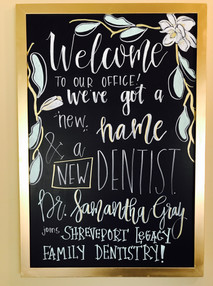 Welcome
TO OUR OFFICE!
We've got a
new name
& a
NEW DENTIST.
Dr. Samantha Gray
joins SHREVEPORT LEGACY
FAMILY DENTISTRY!